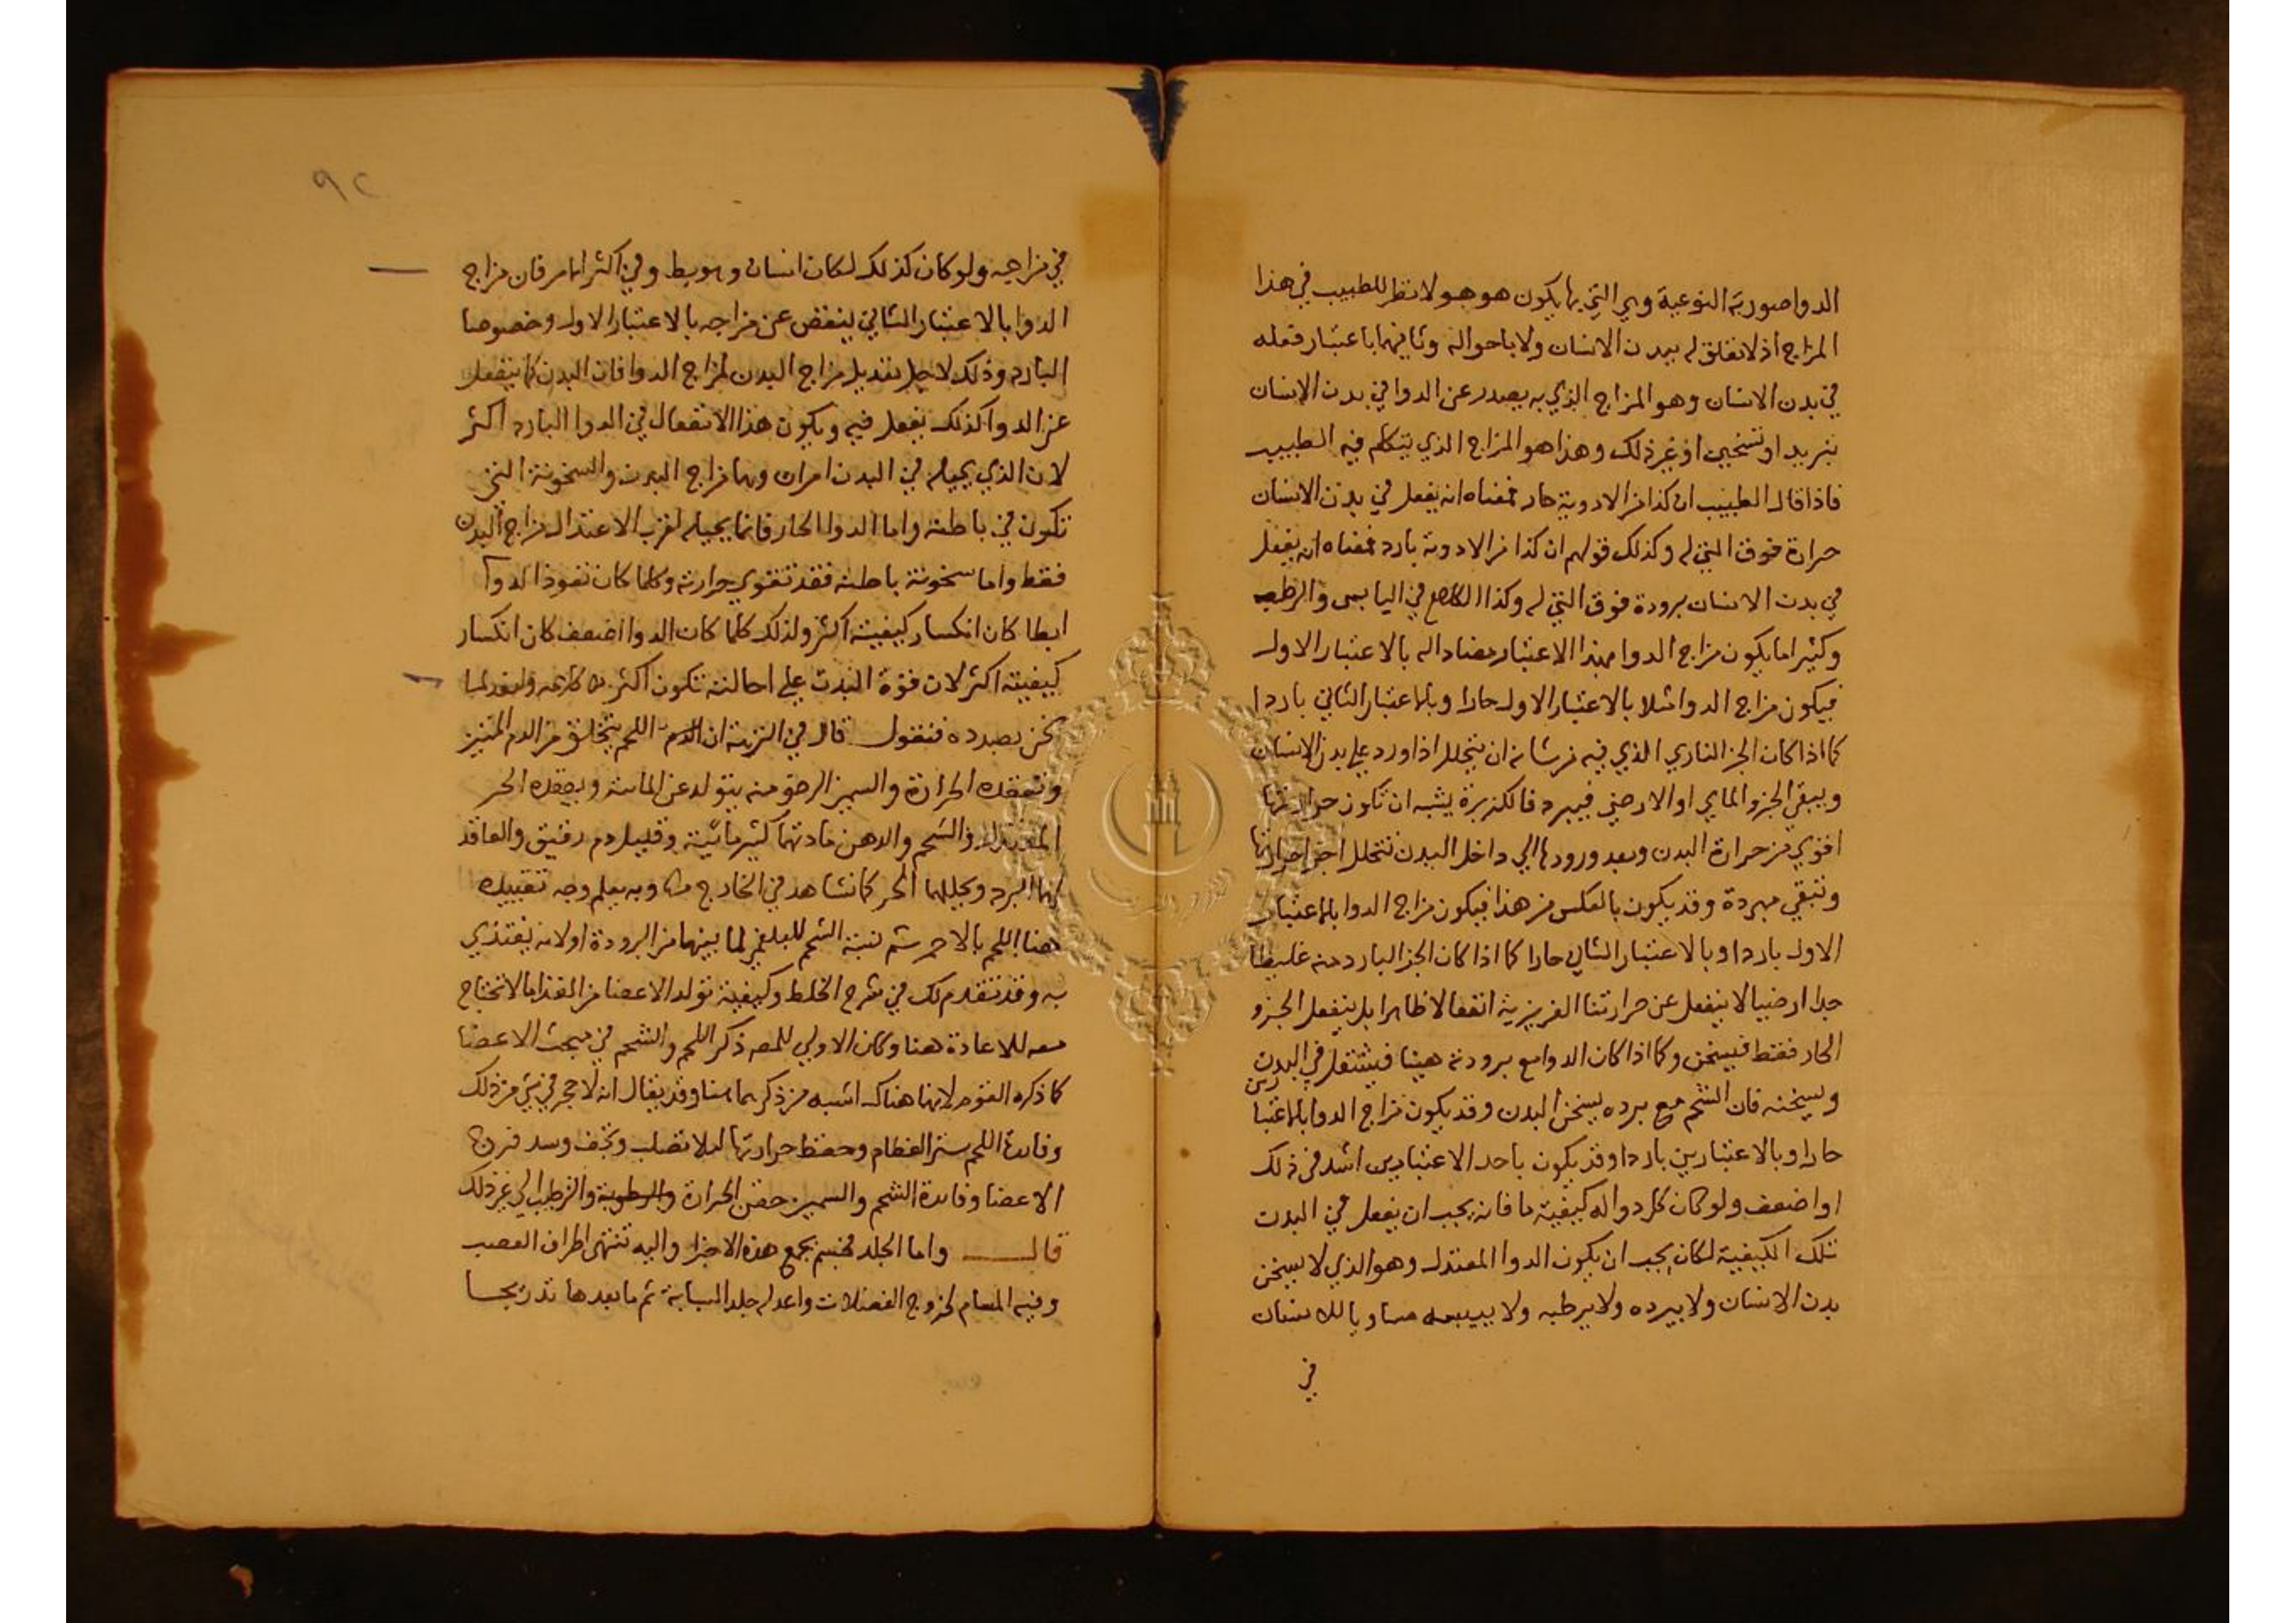 الدوا صورية النوعية وهي التي بها يكون هو هو ولا نظر للطبيب في هذا
المزاج اذ لا تعلق له ببدن الانسان ولا باحواله وثانيهما باعتبار فعله
في بدن الانسان وهو المزاج الذي به يصدر عن الدوا في بدن الانسان
تبريد او تسخين او غير ذلك وهذا هو المزاج الذي يتكلم فيه الطبيب
فاذا قال الطبيب ان كذا من الادوية حار فمعناه انه يفعل في بدن الانسان
حرارة فوق التي له وكذلك قولهم ان كذا من الادوية بارد فمعناه انه يفعل
في بدن الانسان برودة فوق التي له وكذا الكلام في اليابس والرطب
وكثيرا ما يكون مزاج الدوا بهذا الاعتبار مضادا له بالاعتبار الاول
فيكون مزاج الدوا مثلا بالاعتبار الاول حارا وبالاعتبار الثاني باردا
كما اذا كان الجز الناري الذي فيه من شانه ان يتحلل اذا ورد علي بدن الانسان
ويبقي الجزو الماي او الارضي فيبرد فالكزبرة يشبه ان تكون حرارتها
اقوي من حرارة البدن وبعد ورودها الي داخل البدن تتحلل اجزا حرارتها
وتبقي مبردة وقد يكون بالعكس من هذا فيكون مزاج الدوا بالاعتبار
الاول باردا وبالاعتبار الثاني حارا كما اذا كان الجز البارد منه غليظا
جدا ارضيا لا ينفعل عن حرارتنا الغريزية انفعالا ظاهرا بل ينفعل الجزو
الحار فقط فيسخن وكما اذا كان الدوا مع برودته هينا فيشتعل في البدن
ويسخنه فان الشحم مع برده يسخن البدن وقد يكون مزاج الدوا بالاعتبارين
حارا وبالاعتبارين باردا وقد يكون باحد الاعتبارين اشد في ذلك
او اضعف ولو كان كل دوا له كيفية ما فانه يجب ان يفعل في البدن
تلك الكيفية لكان يجب ان يكون الدوا المعتدل وهو الذي لا يسخن
بدن الانسان ولا يبرده ولا يرطبه ولا ييبسه مساويا للانسان
في
٩٢
في مزاجيه ولو كان كذلك لكان انسانا وهو بط وفي اكثر الامر فان مزاج
الدوا بالاعتبار الثاني ينقض عن مزاجه بالاعتبار الاول وخصوصا
البارد وذلك لاجل تعديل مزاج البدن لمزاج الدوا فان البدن كما ينفعل
عن الدوا كذلك يفعل فيه ويكون هذا الانفعال في الدوا البارد اكثر
لان الذي يحيله في البدن امران وهما مزاج البدن والسخونة التي
تكون في باطنه واما الدوا الحار فانما يحيله لقرب الاعتدال مزاج البدن
فقط واما سخونة باطنه فقد تقوي حرارته وكلما كان نفوذ الدوا
ابطا كان انكسار كيفيته اكثر ولذلك كلما كان الدوا اضعف كان انكسار
كيفيته اكثر لان قوة البدن علي احالته تكون اكثر كلامه ولنعد لما
نحن بصدده فنقول قال في النزهة ان الدم اللحم يتخلق من الدم المتين
وتعقده الحرارة والسمين الرخو منه يتولد عن المائية ويعقده الحر
المعتدل والشحم والدهن مادتهما كثير مائية وقليل دم رقيق والعاقد
لهما البرد ويحللهما الحر كما نشاهد في الخارج وبه يعلم وجه تقييده
هنا اللحم بالاحمر ثم نسبة الشحم للبلغم لما بينهما من البرودة او لانه يغتذي
به وقد تقدم لك في شرح الخلط وكيفية تولد الاعضا من الغذا ما لا تحتاج
معه للاعادة هنا وكان الاولي للمصه ذكر اللحم والشحم في مبحث الاعضا
كما ذكره القوم لانها هناك اشبه من ذكرهما هنا وقد يقال انه لا حجر في شي من ذلك
وفائدة اللحم ستر العظام وحفظ حرارتها ليلا تصلب وتجف وسد فرج
الاعضا وفائدة الشحم والسمين حقن الحرارة والرطوبة والترطيب الي غير ذلك
قال واما الجلد فجسم يجمع هذه الاجزا واليه تنتهي اطراف العصب
وفيه المسام لخروج الفضلات واعدله جلد السبابة ثم ما بعدها تدريجا